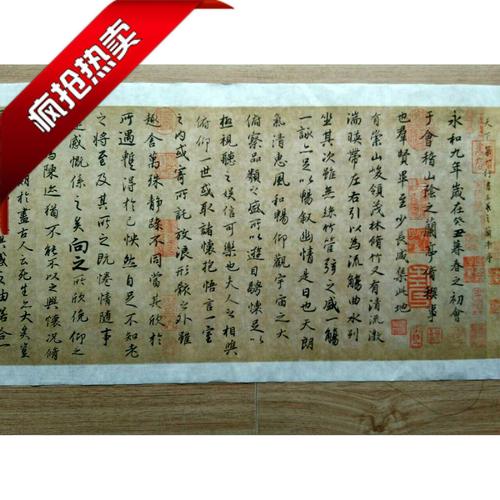 疯抢热卖
永和九年歲在癸丑暮春之初會
于會稽山陰之蘭亭脩稧事
也群賢畢至少長咸集此地
有崇山峻領茂林脩竹又有清流激
湍暎帶左右引以為流觴曲水列
坐其次雖無絲竹管弦之盛一觴
一詠亦足以暢敘幽情是日也天朗
氣清惠風和暢仰觀宇宙之大
俯察品類之盛所以遊目騁懷足以
極視聽之娛信可樂也夫人之相與
俯仰一世或取諸懷抱悟言一室
之內或寄所託放浪形骸之外雖
趣舍萬殊靜躁不同當其欣於
所遇暫得於己怏然自足不知老
之將至及其所之既惓情隨事
遷感慨係之矣向之所欣俛仰之
為陳迹猶不能不以之興懷況脩
期於盡古人云死生亦大矣豈
感之由若合一